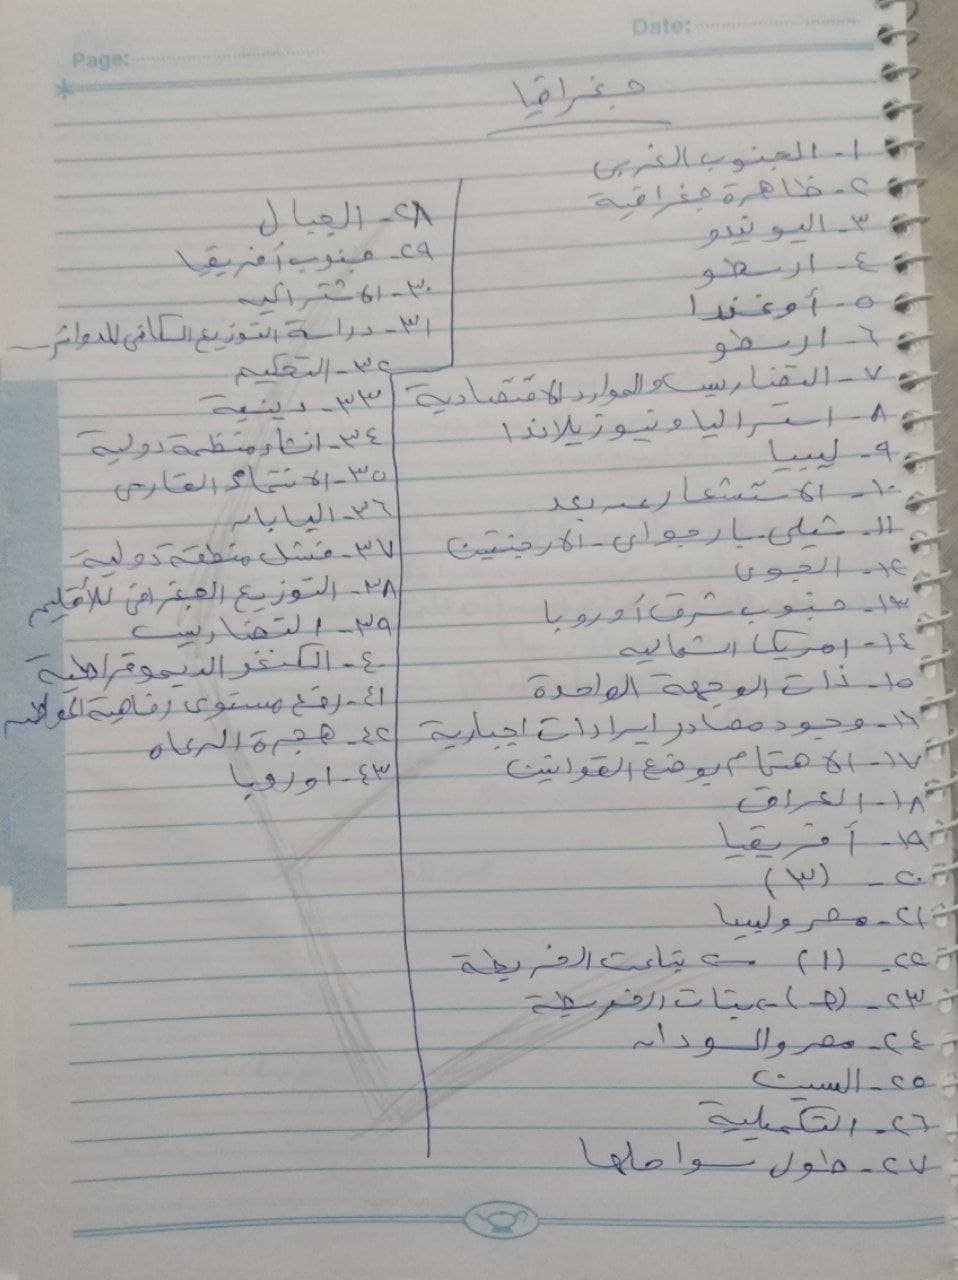 Date:
Page:
جغرافيا
١- الجنوب الغربى
٢- ظاهرة جغرافية
٣- اليوتيدو
٤- ارسطو
٥- أوغندا
٦- ارسطو
٧- التضاريس والموارد الاقتصادية
٨- استراليا ونيوزيلاندا
٩- ليبيا
١٠- الاستشعار عن بعد
١١- شيلى - بارجواى - الارجنتين
١٢- الجوى
١٣- جنوب شرق أوروبا
١٤- امريكا الشماليه
١٥- ذات الوجهة الواحدة
١٦- وجود مصادر ايرادات اجبارية
١٧- الاهتمام بوضع القوانين
١٨- العراق
١٩- أفريقيا
٢٠- (٣)
٢١- مصر وليبيا
٢٢- (١) بتاعت الخريطة
٢٣- (ج) الخريطة
٢٤- مصر والسودان
٢٥- السين
٢٦- التكميلية
٢٧- طول سواحلها
٢٨- الجبال
٢٩- جنوب أفريقيا
٣٠- الاشتراكيه
٣١- دراسة التوزيع المكانى للدوائر
٣٢- التحكيم
٣٣- دينية
٣٤- انشاء منظمة دولية
٣٥- الانتماء القارى
٣٦- اليابان
٣٧- فشل منظمة دولية
٣٨- التوزيع الجغرافى للأقليم
٣٩- التضاريس
٤٠- الكنغو الديموقراطية
٤١- رفع مستوى رفاهية المواطن
٤٢- هجرة الرعاه
٤٣- اوروبا